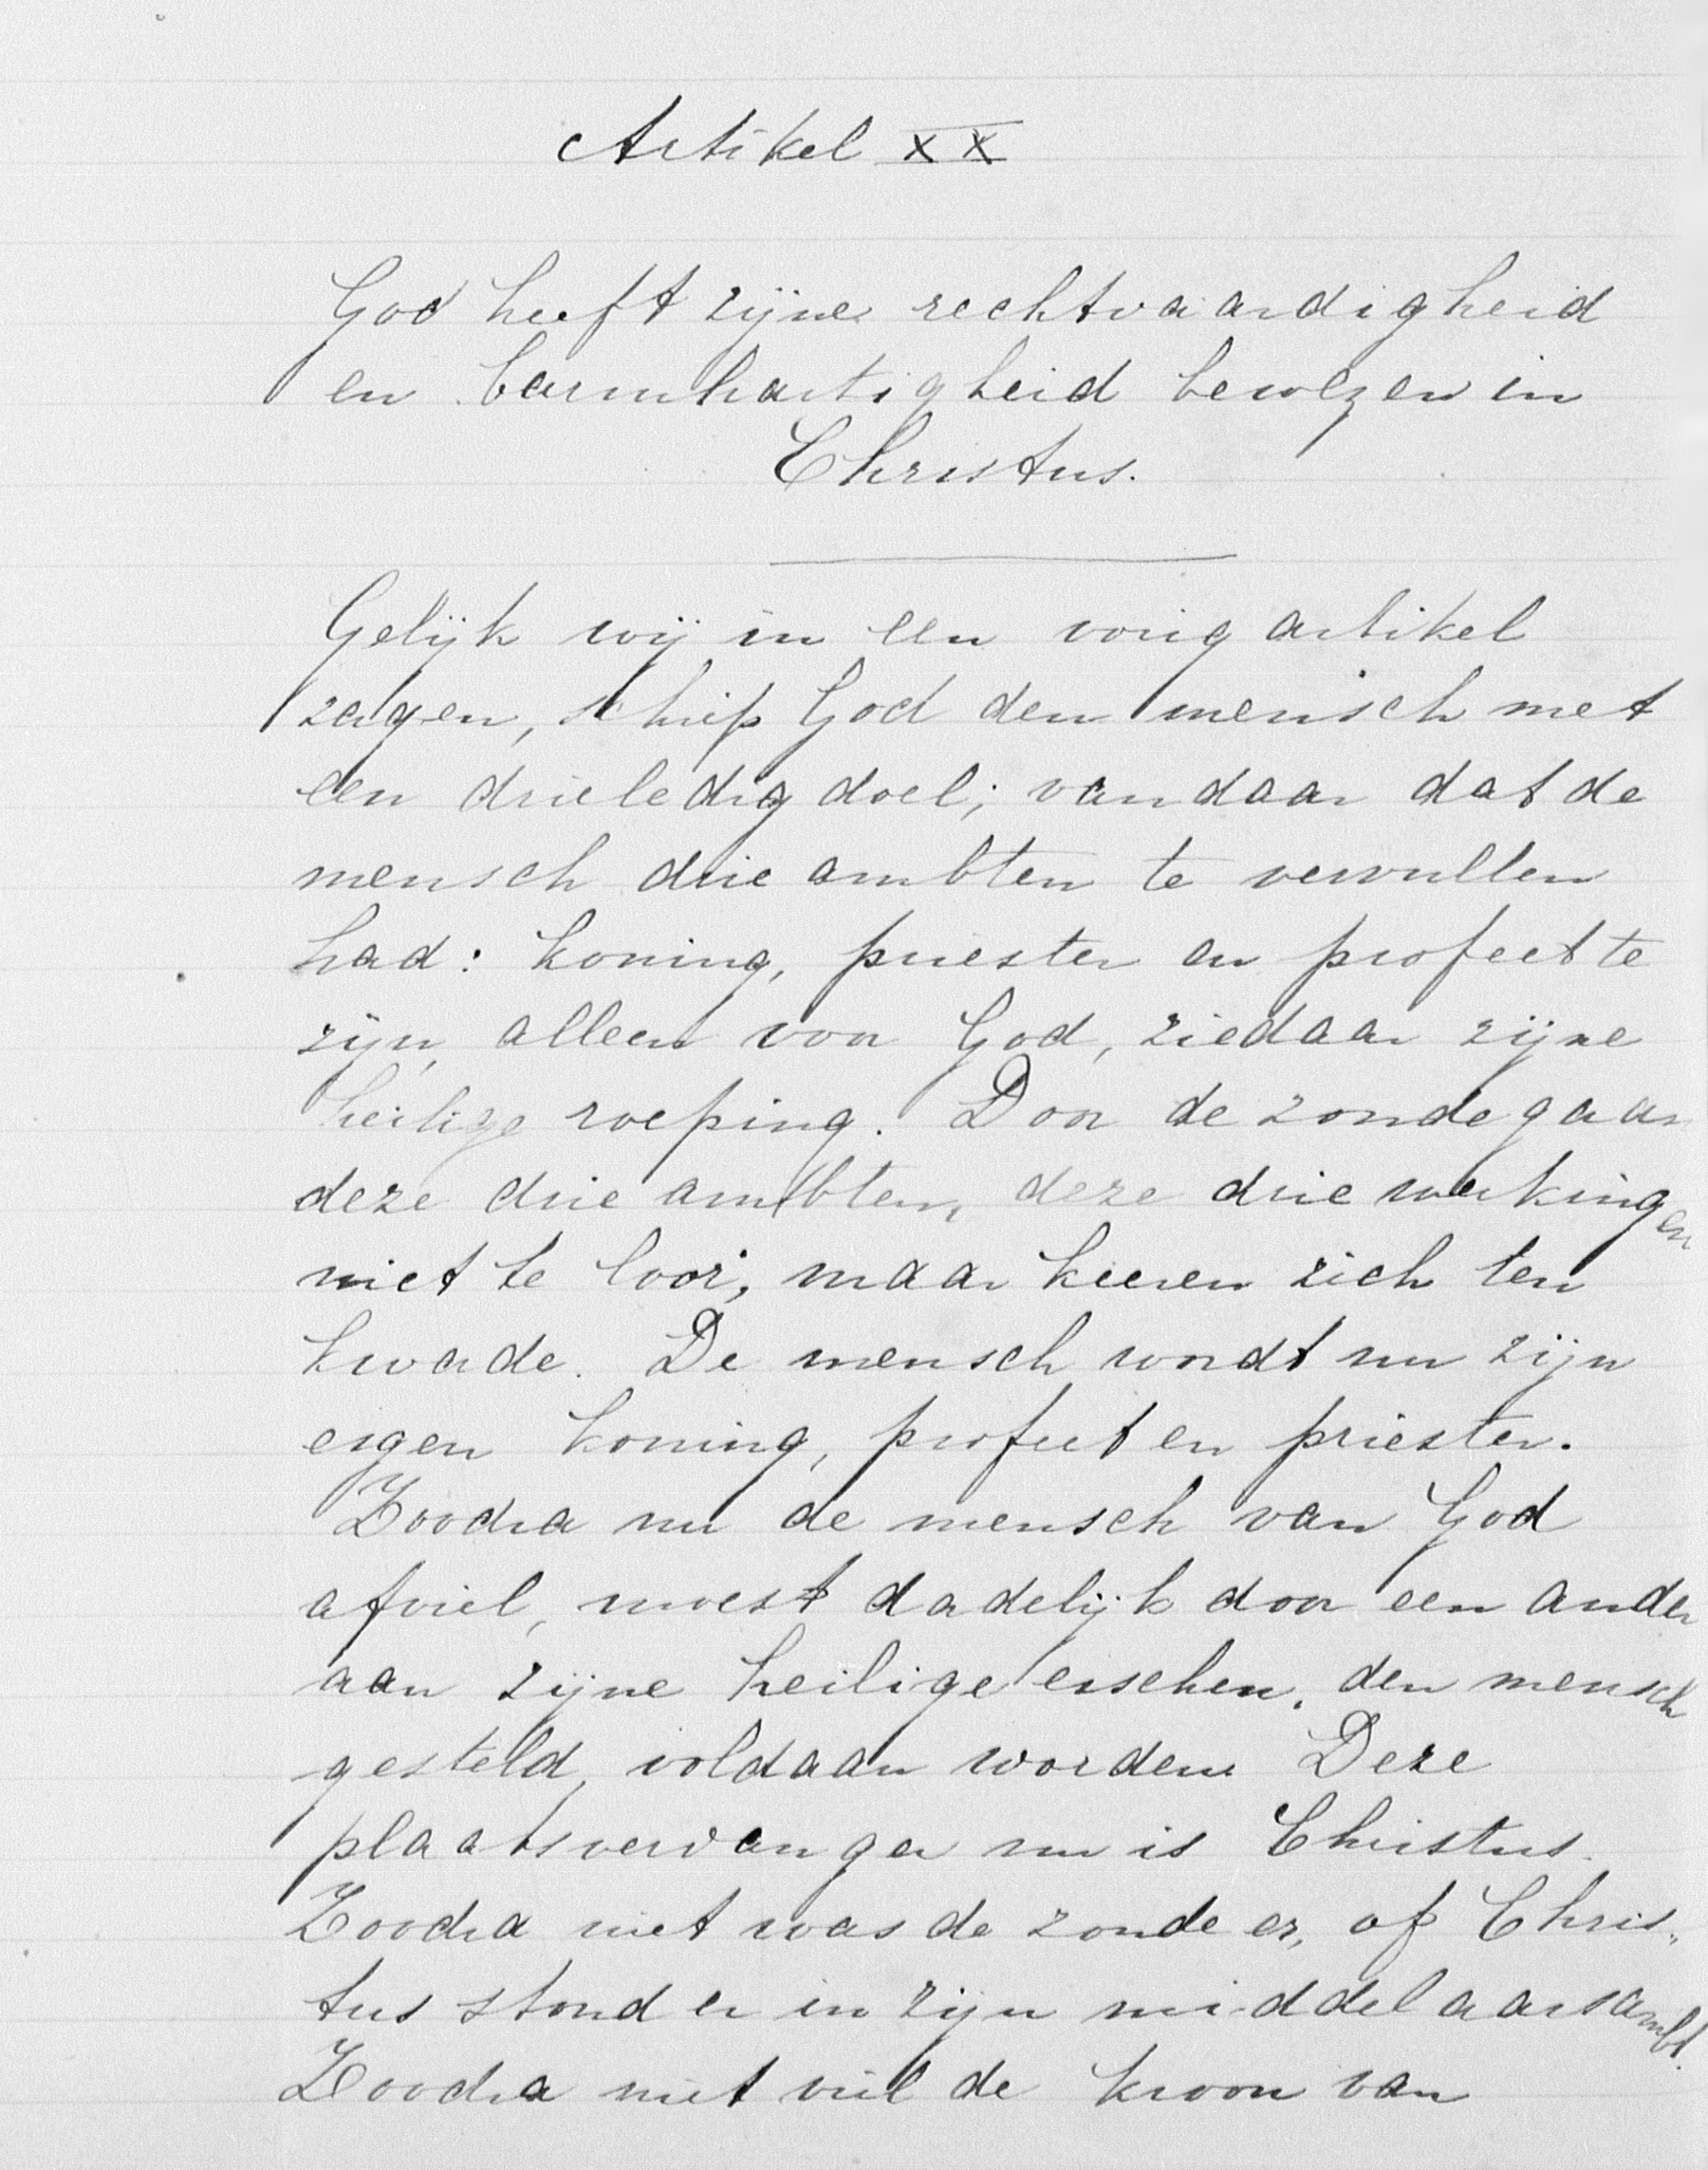 Artikel XX
God heeft zijne rechtvaardigheid
en barmhartigheid bewezen in
Christus.
Gelijk wij in een vorig artikel
zagen, schiep God den mensch met
een drieledig doel; vandaar dat de
mensch drie ambten te vervullen
had: koning, priester en profeet te
zijn, alleen voor God, ziedaar zijne
heilige roeping. Door de zonde gaan
deze drie ambten, deze drie werkingen
niet te loor, maar keeren zich ten
kwade. De mensch wordt nu zijn
eigen koning, profeet en priester.
Zoodra nu de mensch van God
afviel, moest dadelijk door een ander
aan zijne heilige eischen, den mensch
gesteld, voldaan worden. Deze
plaatsvervanger nu is Christus.
Zoodra niet was de zonde er, of Chris„
tus stond er in zijn middelaarsambt.
Zoodra niet viel de kroon van